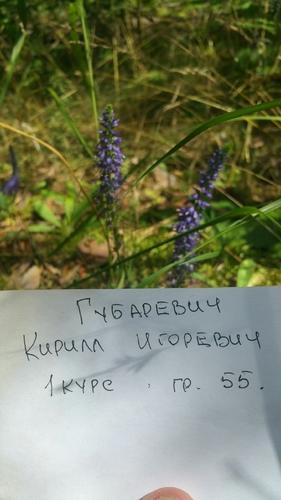 Губаревич
Кирилл Игоревич
1 курс , гр. 55.